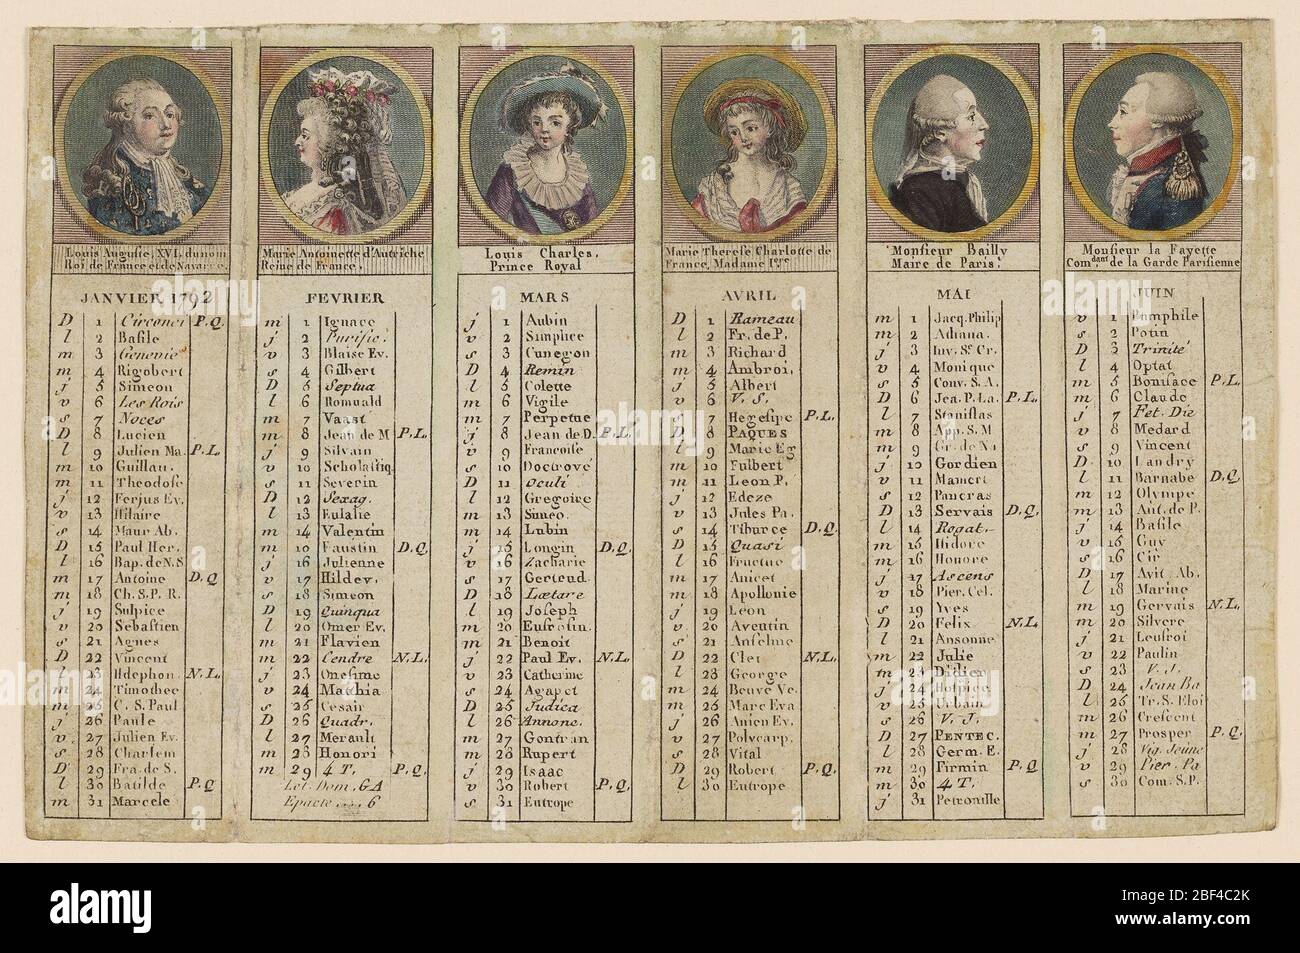 Louis Auguste, XVI. du nom
Roi de France et de Navarre.
JANVIER 1792
D 1 Circonci P.Q.
l 2 Basile
m 3 Genevie
m 4 Rigobert
j 5 Simeon
v 6 Les Rois
s 7 Noces
D 8 Lucien
l 9 Julien Ma. P.L.
m 10 Guillau.
m 11 Theodose
j 12 Ferjus Ev.
v 13 Hilaire
s 14 Maur Ab.
D 15 Paul Her.
l 16 Bap. de N.S.
m 17 Antoine D.Q
m 18 Ch. S. P. R.
j 19 Sulpice
v 20 Sebastien
s 21 Agnes
D 22 Vincent
l 23 Ildephon. N.L.
m 24 Timothee
m 25 C. S. Paul
j 26 Paule
v 27 Julien Ev.
s 28 Charlem
D 29 Fra. de S.
l 30 Batilde P.Q
m 31 Marcele
Marie Antoinette d'Autriche
Reine de France.
FEVRIER
m 1 Ignace
j 2 Purific.
v 3 Blaise Ev.
s 4 Gilbert
D 5 Septua
l 6 Romuald
m 7 Vaast
m 8 Jean de M P.L.
j 9 Silvain
v 10 Scholastiq
s 11 Severin
D 12 Sexag.
l 13 Eulalie
m 14 Valentin
m 10 Faustin D.Q.
j 16 Julienne
v 17 Hildev.
s 18 Simeon
D 19 Quinqua
l 20 Omer Ev.
m 21 Flavien
m 22 Cendre N.L.
j 23 Onesime
v 24 Matthia
s 25 Cesair
D 26 Quadr.
l 27 Merault
m 28 Honori
m 29 4 T. P.Q.
Let. Dom. GA
Epacte .... 6
Louis Charles,
Prince Royal
MARS
j 1 Aubin
v 2 Simplice
s 3 Cunegon
D 4 Remin
l 5 Colette
m 6 Vigile
m 7 Perpetue
j 8 Jean de D. P.L.
v 9 Francoise
s 10 Doctrové
D 11 Oculi
l 12 Gregoire
m 13 Simeo.
m 14 Lubin
j 15 Longin D.Q.
v 16 Zacharie
s 17 Gertrud.
D 18 Lætare
l 19 Joseph
m 20 Eufrosin.
m 21 Benoit
j 22 Paul Ev. N.L.
v 23 Catherine
s 24 Agapet
D 25 Judica
l 26 Annonc.
m 27 Gontran
m 28 Rupert
j 29 Isaac
v 30 Robert P.Q.
s 31 Eutrope
Marie Therese Charlotte de
France, Madame 1ere
AVRIL
D 1 Rameau
l 2 Fr. de P.
m 3 Richard
m 4 Ambroi.
j 5 Albert
v 6 V. S.
s 7 Hegesipe P.L.
D 8 PAQUES
l 9 Marie Eg
m 10 Fulbert
m 11 Leon P.
j 12 Edeze
v 13 Jules Pa.
s 14 Tiburce D.Q.
D 15 Quasi
l 16 Fructue
m 17 Anicet
m 18 Apollonie
j 19 Leon
v 20 Aventin
s 21 Anselme
D 22 Clet N.L.
l 23 George
m 24 Beuve Ve.
m 25 Marc Eva
j 26 Anien Ev.
v 27 Polycarp.
s 28 Vital
D 29 Robert P.Q.
l 30 Eutrope
Monsieur Bailly
Maire de Paris.
MAI
m 1 Jacq. Philip
m 2 Athana.
j 3 Inv. Se Cr.
v 4 Monique
s 5 Conv. S. A.
D 6 Jea. P. La. P.L.
l 7 Stanislas
m 8 App. S. M
m 9 Gr. de Na
j 10 Gordien
v 11 Mamert
s 12 Pancras
D 13 Servais D.Q.
l 14 Rogat.
m 15 Isidore
m 16 Honore
j 17 Ascens
v 18 Pier. Cel.
s 19 Yves
D 20 Felix N.L
l 21 Ansonne
m 22 Julie
m 23 Didier
j 24 Hospice
v 25 Urbain
s 26 V. J.
D 27 PENTEC.
l 28 Germ. E.
m 29 Firmin P.Q
m 30 4 T.
j 31 Petronille
Monsieur la Fayette
Com.dant de la Garde Parisienne
JUIN
v 1 Pamphile
s 2 Potin
D 3 Trinité
l 4 Optat
m 5 Boniface P.L.
m 6 Claude
j 7 Fet. Die
v 8 Medard
s 9 Vincent
D 10 Landry
l 11 Barnabe D.Q.
m 12 Olympe
m 13 Ant. de P.
j 14 Basile
v 15 Guy
s 16 Cir
D 17 Avit Ab.
l 18 Marine
m 19 Gervais N.L.
m 20 Silvere
j 21 Leufroi
v 22 Paulin
s 23 V. J.
D 24 Jean Ba
l 25 Tr. S. Eloi
m 26 Crescent
m 27 Prosper P.Q.
j 28 Vig. Jeune
v 29 Pier. Pa
s 30 Com. S.P.
alamy
Image ID: 2BF4C2K
www.alamy.com